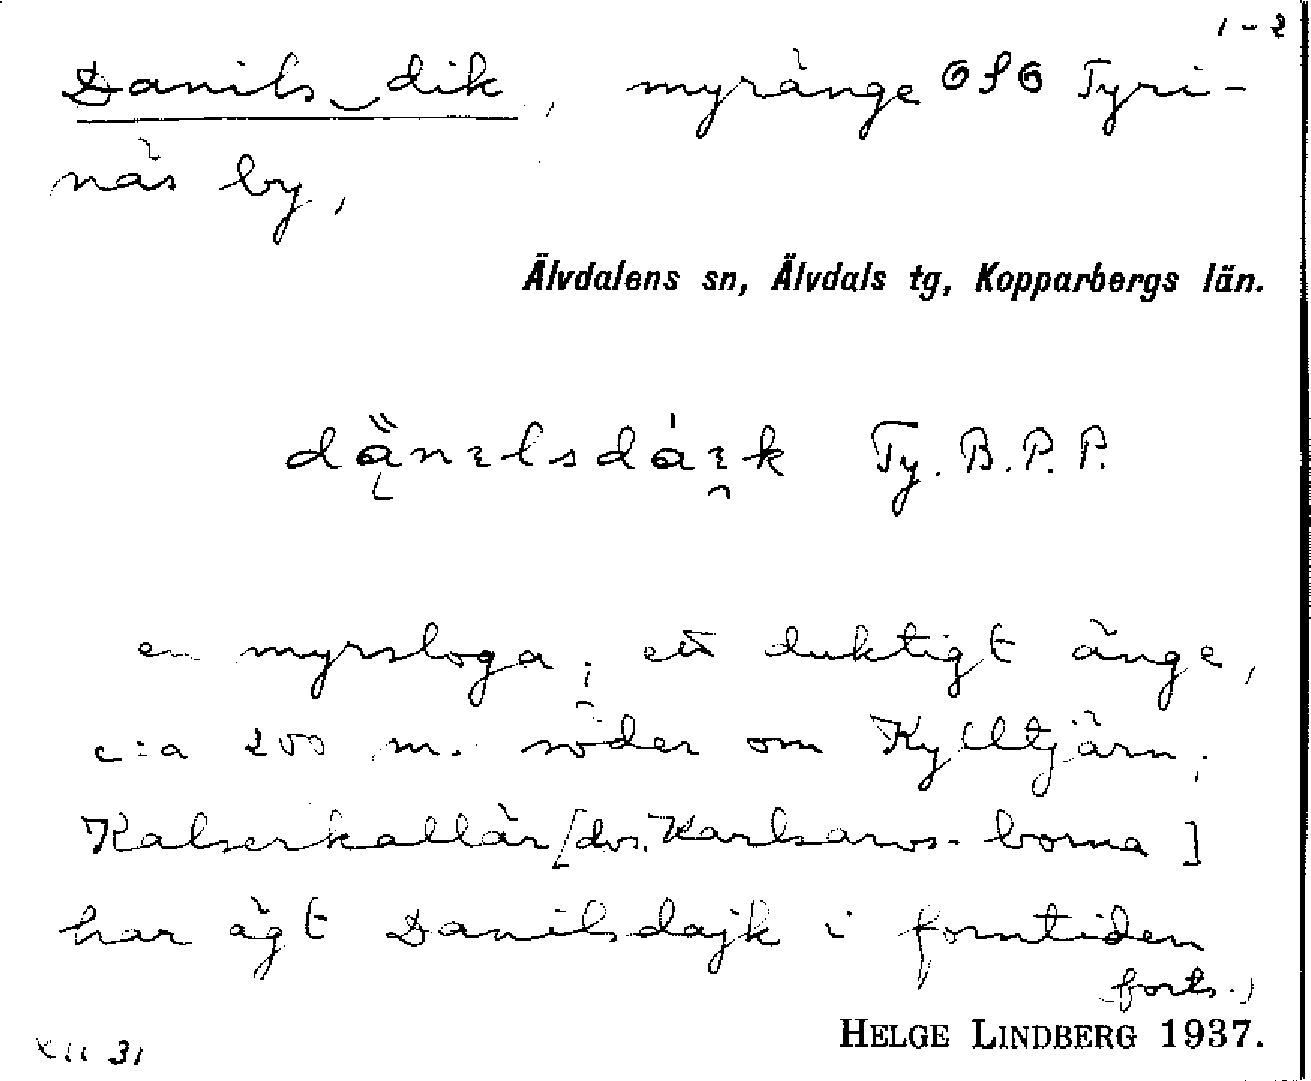 1-2
Danils dik, myränge OSO Tyri-
näs by,
Älvdalens sn, Älvdals tg, Kopparbergs län.
Ty. B. P. P.
en myrsloga; ett duktigt änge,
c:a 200 m. söder om Kylltjärn;
Kalserkallär [dvs. Karlsarvs-borna]
har ägt Danilsdajk i forntiden
forts.)
HELGE LINDBERG 1937.
31